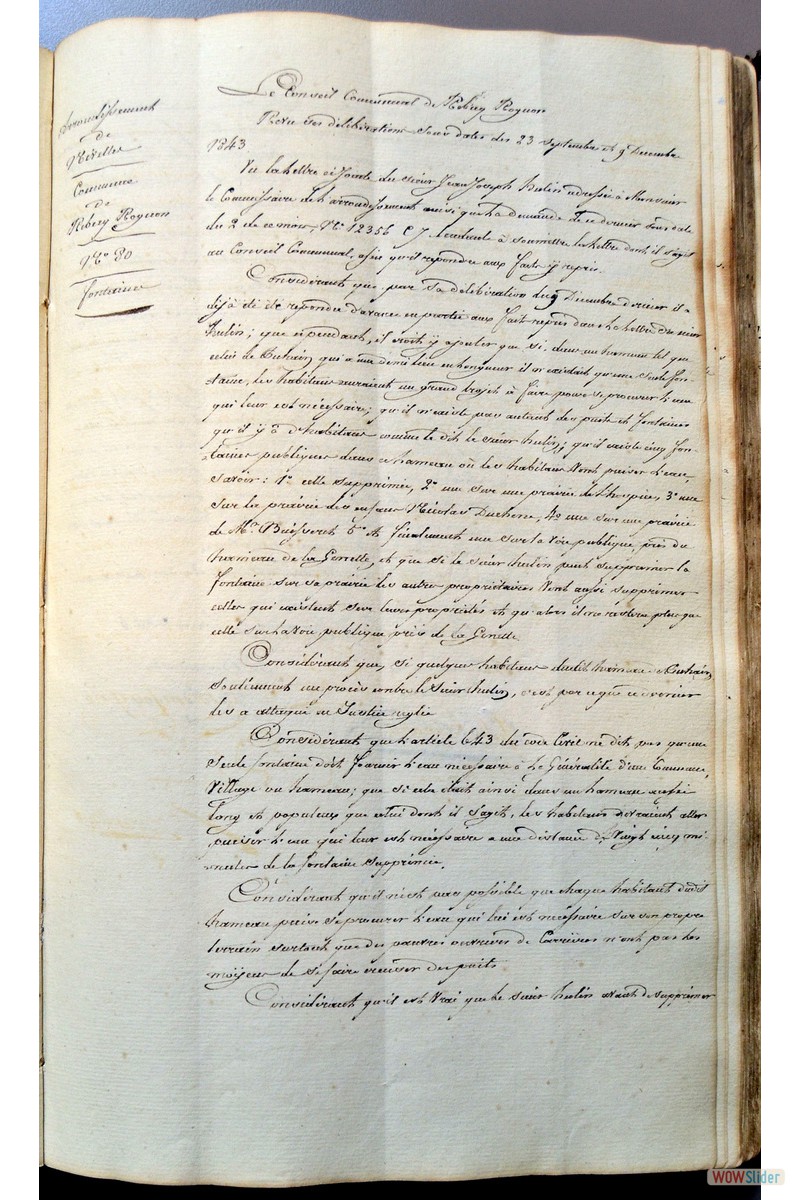 Arrondissement
de
Nivelles
Commune
de
Rebecq Rognon
N° 80
fontaine
Le Conseil Communal de Rebecq Rognon
Revu ses délibérations sous dates des 23 septembre et 9 Decembre
1843.
Vu la lettre ci jointe du sieur Jean Joseph hulin adressée à Monsieur
le Commissaire de l'arrondissement ainsi que la demande de ce dernier sous date
du 2 de ce mois, N° 12356 tendante à soumettre la lettre dont il s'agit
au Conseil Communal, afin qu'il réponde aux faits y repris.
Considérant que par sa délibération du 9 Décembre dernier il a
déjà été répondu d'avance en partie aux fait repris dans la lettre du sieur
hulin; que cependant, il croit y ajouter que si, dans un hameau tel que
celui de qui a une demi lieu en longueur il n'existait qu'une seule fon-
taine, les habitans auraient un grand trajet à faire pour se procurer l'eau
qui leur est nécessaire; qu'il n'existe pas autant de puits et fontaines
qu'il y à d'habitans comme le dit le sieur hulin; qu'il existe cinq fon-
taines publiques dans ce hameau où les habitans vont puiser l'eau,
savoir: 1° celle supprimée, 2° une sur une prairie de l'hospice, 3° une
sur la prairie des enfans Nicolas Duchene, 4° une sur une prairie
de Mr. 5° et finalement une sur la voie publique, près du
hameau de la Genette, et que si le sieur hulin peut supprimer la
fontaine sur sa prairie les autres propriétaires vont aussi supprimer
celles qui existent sur leurs propriétés et qu'alors il ne restera plus que
celle sur la voie publique près de la Genette.
Considérant que, si quelques habitans dudit hameau de
soutiennent un procès contre le sieur hulin, c'est par ce que ce dernier
les a attaqué en Justice réglée
Considérant que l'article 643 du code Civil ne dit pas qu'une
seule fontaine doit fournir l'eau nécessaire à la Généralité d'une Commune,
Village ou hameau; que si cela était ainsi dans un hameau aussi
long et populeux que celui dont il s'agit, les habitans devraient aller
puiser l'eau qui leur est nécessaire a une distance de vingt cinq mi-
nutes de la fontaine supprimée.
Considérant qu'il n'est pas possible que chaque habitant dudit
hameau puise se procurer l'eau qui lui est nécessaire sur son propre
terrain surtout que des pauvres ouvriers de Carrières n'ont pas les
moyens de se faire creuser des puits
Considérant qu'il est vrai que le sieur hulin avant de supprimer
WOWSlider